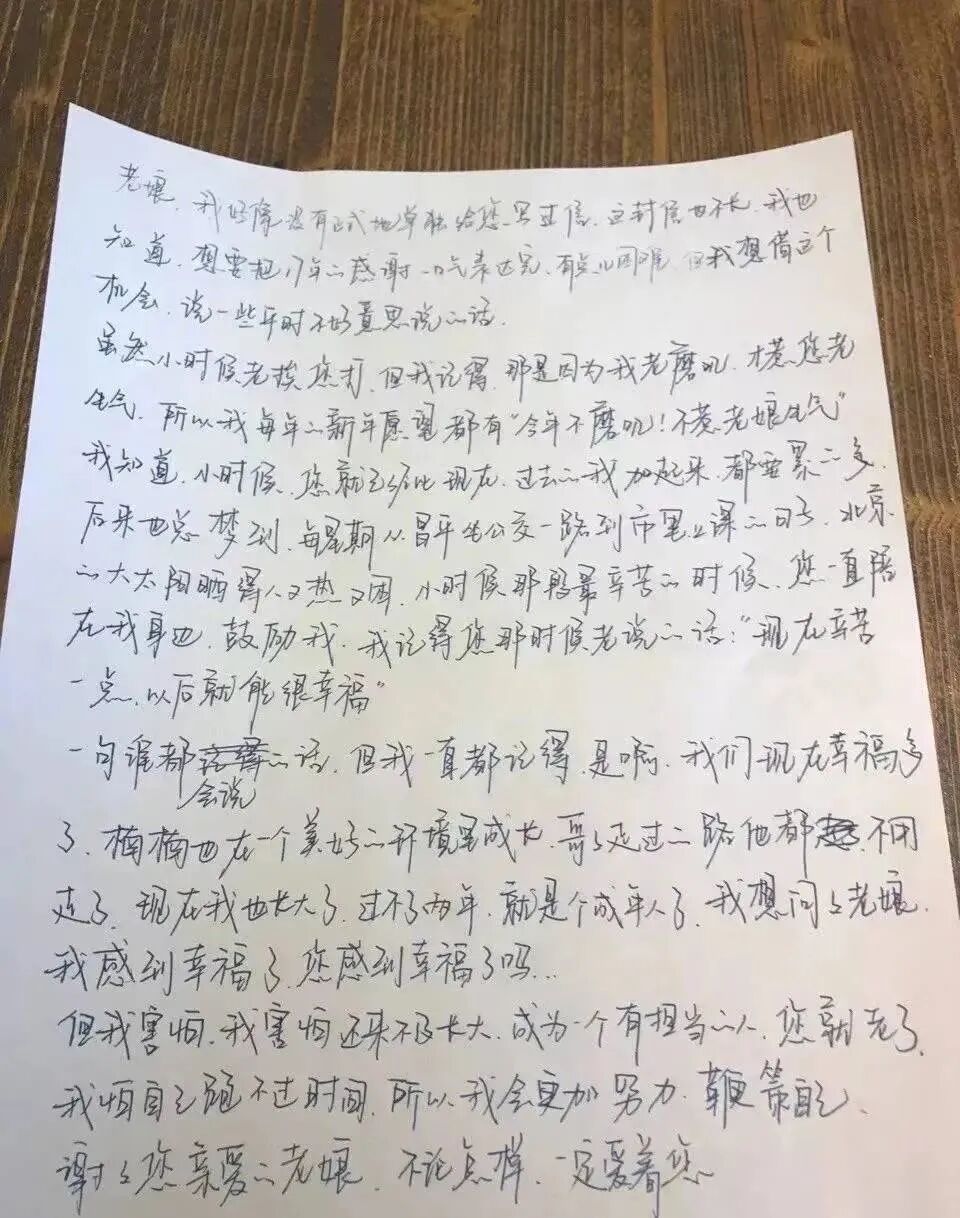 老娘、我好像没有正式地单独给您写过信、这封信也不长、我也
知道、想要把17年的感谢一口气表达完、有点儿困难、但我想借这个
机会、说一些平时不好意思说的话.
虽然小时候老挨您打、但我记得、那是因为我老磨叽、才惹您老
生气、所以我每年的新年愿望都有“今年不磨叽!不惹老娘生气”
我知道、小时候、您就已经比现在、过去的我加起来、都要累的多、
后来也总梦到、每星期从昌平坐公交一路到市里上课的日子、北京
的大太阳晒得人又热又困、小时候那段最辛苦的时候、您一直陪
在我身边、鼓励我、我记得您那时候老说的话:“现在辛苦
一点、以后就能很幸福”
一句谁都会说的话、但我一直都记得、是啊、我们现在幸福多
了、楠楠也在一个美好的环境里成长、哥哥走过的路他都不用
走了、现在我也长大了、过不了两年、就是个成年人了、我想问问老娘、
我感到幸福了、您感到幸福了吗...
但我害怕、我害怕还来不及长大、成为一个有担当的人、您就老了、
我怕自己跑不过时间、所以我会更加努力、鞭策自己、
谢谢您亲爱的老娘、不论怎样、一定爱着您